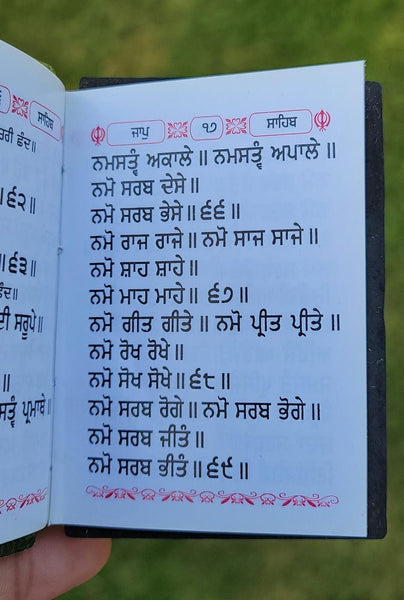 ਸਾਹਿਬ
ਛੰਦ॥
੬੨॥
੬੩॥
ਛੰਦ॥
ਸਰੂਪੇ॥
॥
ਪ੍ਰਮਾਥੇ॥
ਜਾਪੁ ੧੭ ਸਾਹਿਬ
ਨਮਸਤ੍ਵੰ ਅਕਾਲੇ ॥ ਨਮਸਤ੍ਵੰ ਅਪਾਲੇ ॥
ਨਮੋ ਸਰਬ ਦੇਸੇ ॥
ਨਮੋ ਸਰਬ ਭੇਸੇ ॥੬੬॥
ਨਮੋ ਰਾਜ ਰਾਜੇ ॥ ਨਮੋ ਸਾਜ ਸਾਜੇ ॥
ਨਮੋ ਸ਼ਾਹ ਸ਼ਾਹੇ ॥
ਨਮੋ ਮਾਹ ਮਾਹੇ ॥ ੬੭॥
ਨਮੋ ਗੀਤ ਗੀਤੇ ॥ ਨਮੋ ਪ੍ਰੀਤ ਪ੍ਰੀਤੇ ॥
ਨਮੋ ਰੋਖ ਰੋਖੇ ॥
ਨਮੋ ਸੋਖ ਸੋਖੇ ॥੬੮॥
ਨਮੋ ਸਰਬ ਰੋਗੇ ॥ ਨਮੋ ਸਰਬ ਭੋਗੇ ॥
ਨਮੋ ਸਰਬ ਜੀਤੰ ॥
ਨਮੋ ਸਰਬ ਭੀਤੰ ॥੬੯॥